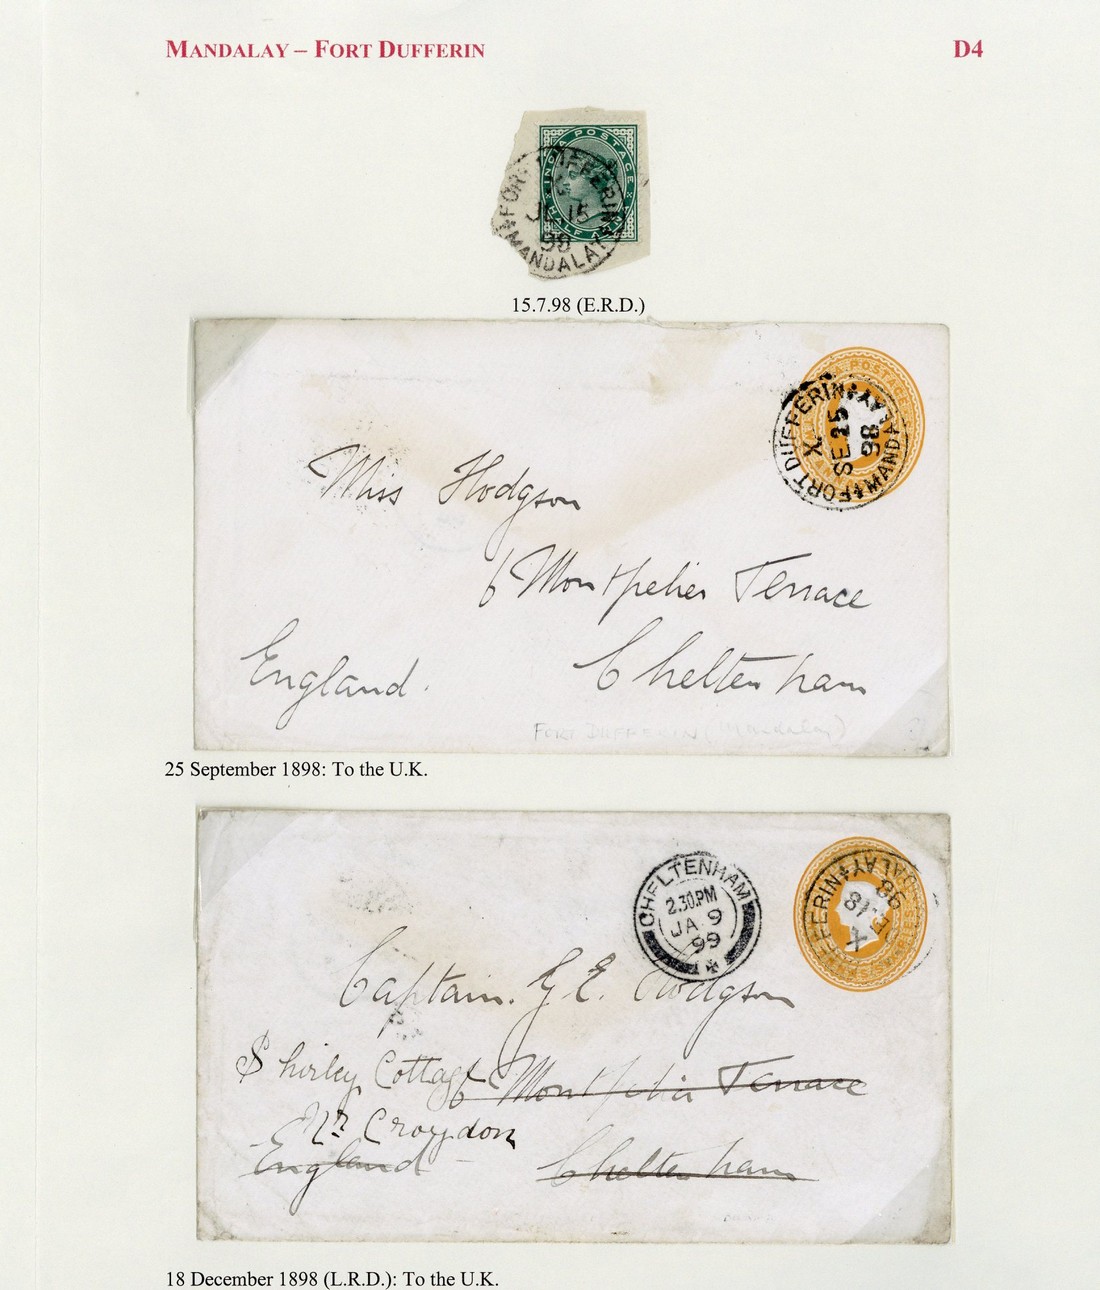 MANDALAY – FORT DUFFERIN
D4
INDIA POSTAGE
HALF ANNA
FORT DUFFERIN
JL 15
98
MANDALAY
15.7.98 (E.R.D.)
POSTAGE
FORT DUFFERIN
X
SE 25
98
MANDALAY
Miss Hodgson
6 Montpelier Terrace
England. Cheltenham
FORT DUFFERIN (Mandalay)
25 September 1898: To the U.K.
CHELTENHAM
2.30.PM
JA 9
99
DUFFERIN
DALAY
X
18
98
Captain. G. E. Hodgson
Shirley Cottage 6 Montpelier Terrace
Nr Croydon
England Cheltenham
18 December 1898 (L.R.D.): To the U.K.